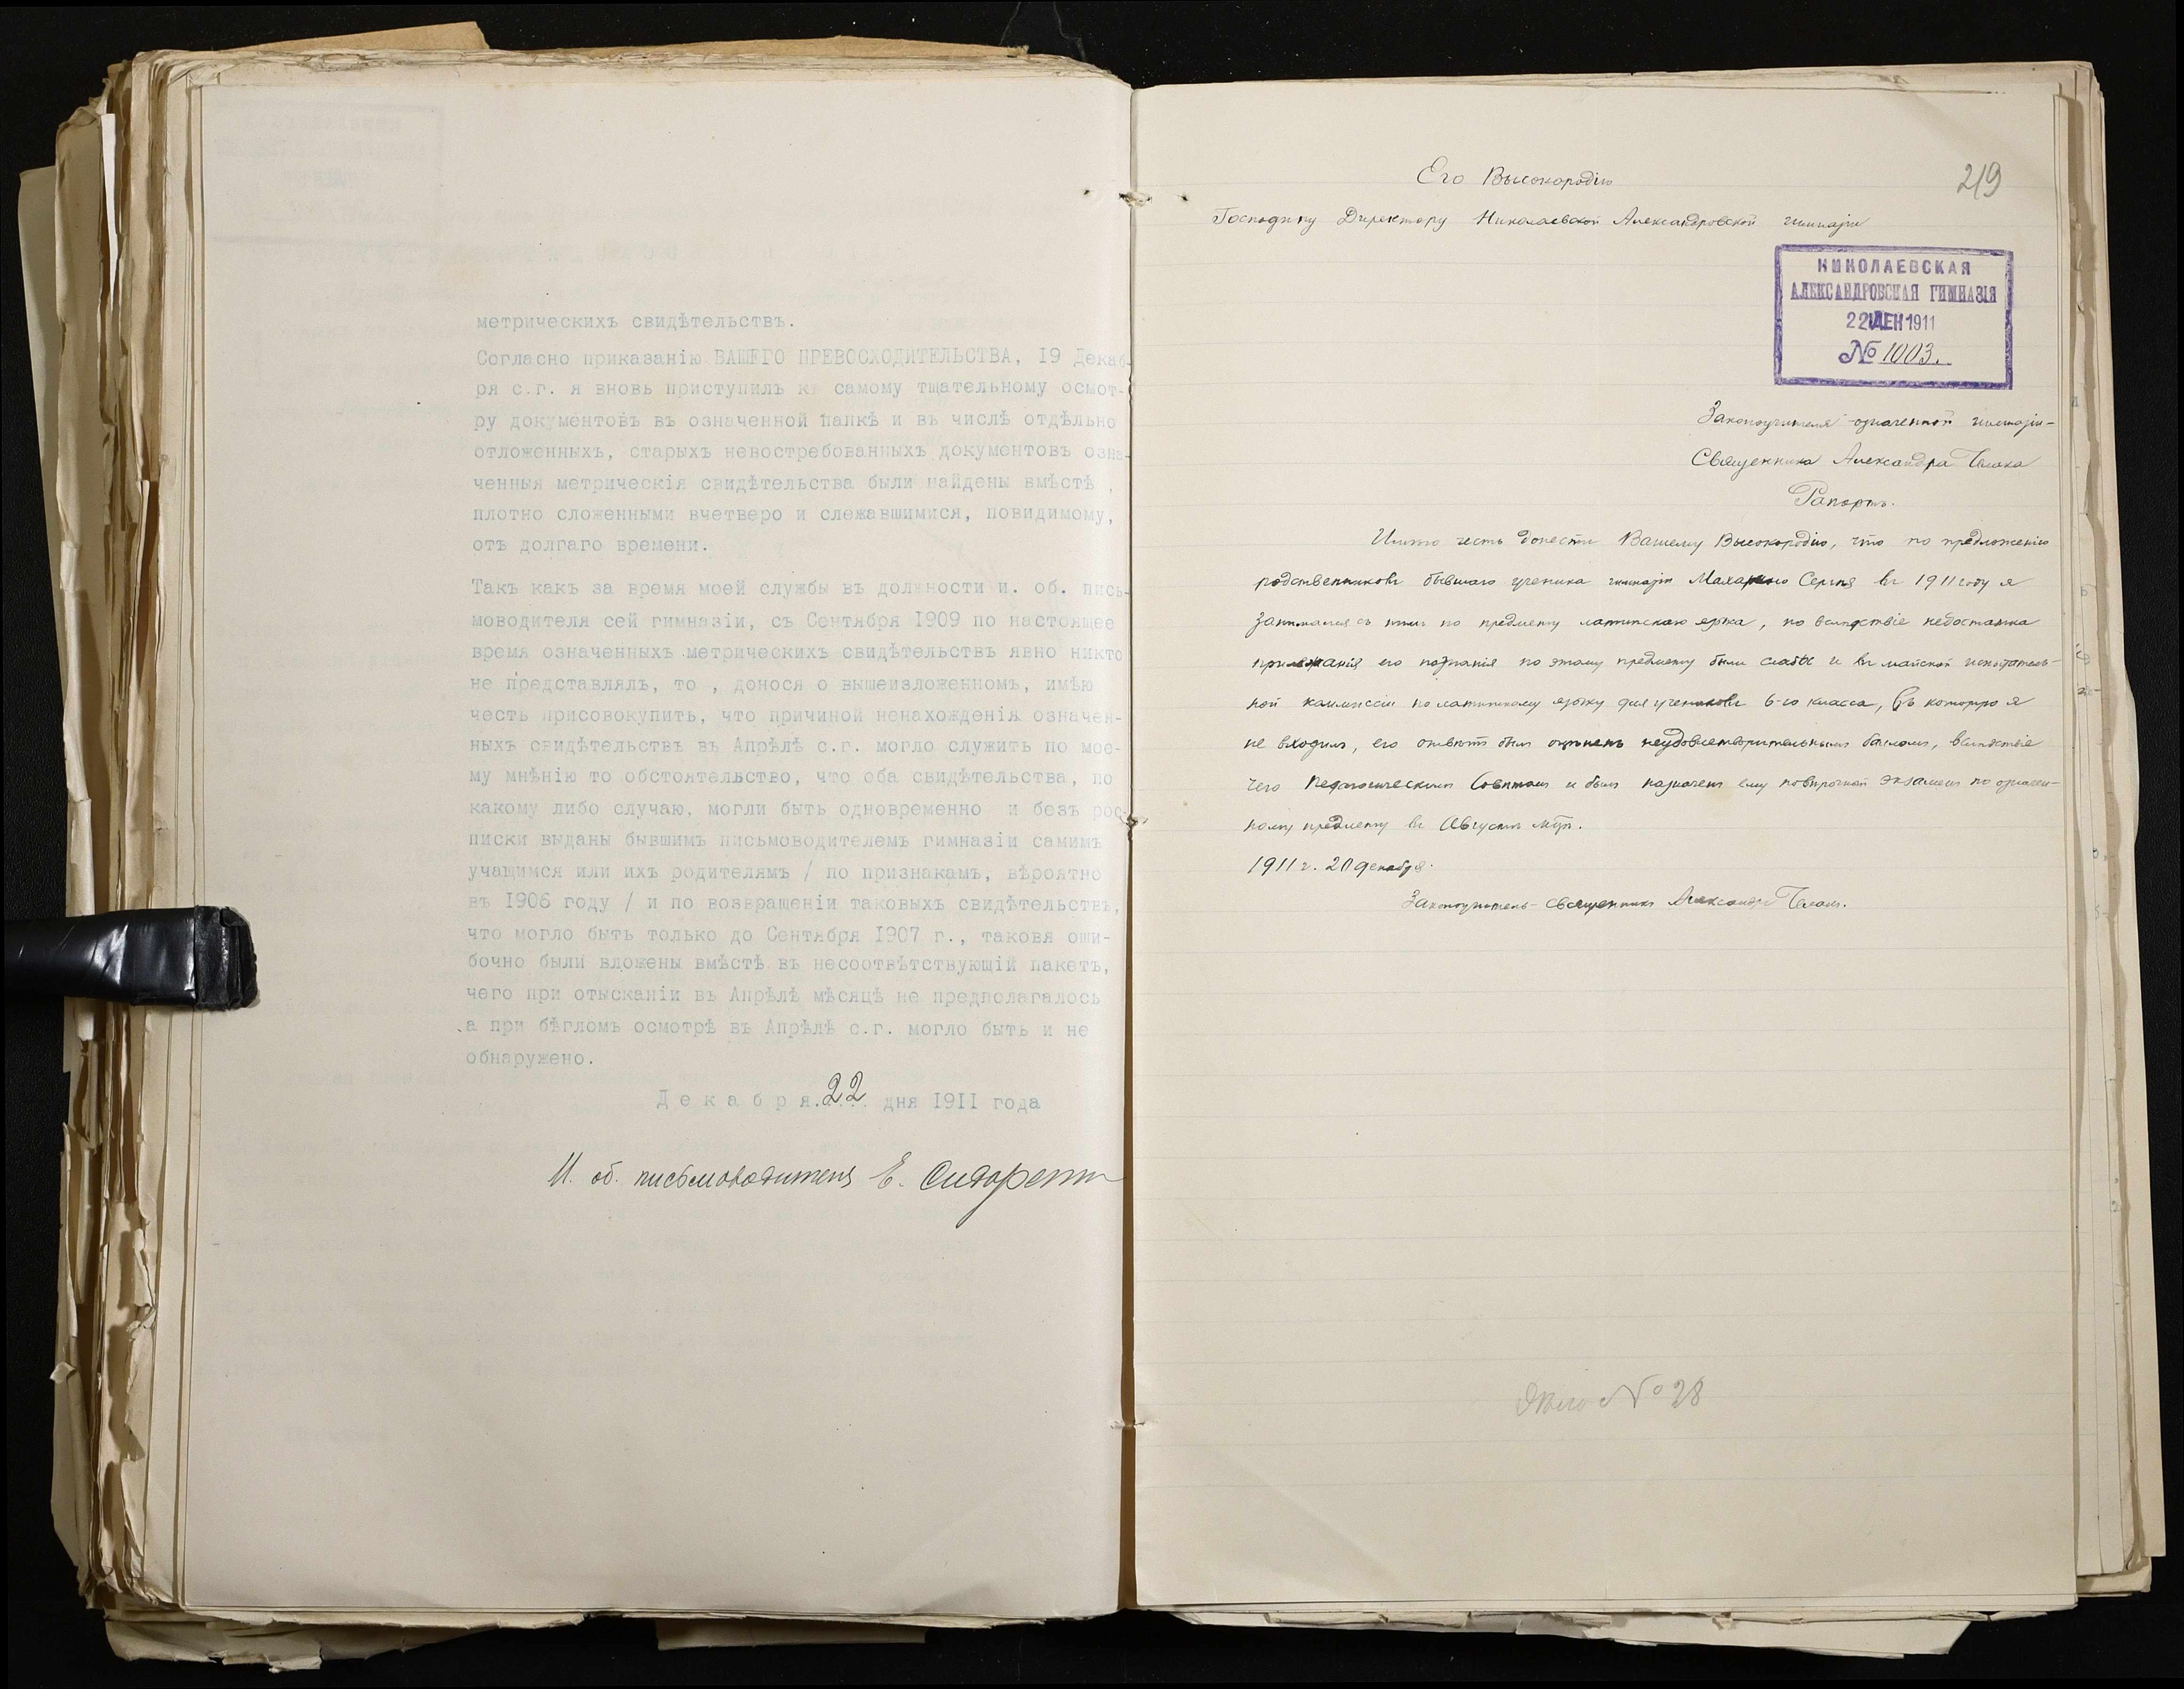 метрическихъ свидѣтельствъ.
Согласно приказанію ВАШЕГО ПРЕВОСХОДИТЕЛЬСТВА, 19 Декаб-
ря с.г. я вновь приступилъ къ самому тщательному осмот-
ру документовъ въ означенной папкѣ и въ числѣ отдѣльно
отложенныхъ, старыхъ невостребованныхъ документовъ озна-
ченныя метрическія свидѣтельства были найдены вмѣстѣ ,
плотно сложенными вчетверо и слежавшимися, повидимому,
отъ долгаго времени.
Такъ какъ за время моей службы въ должности и. об. пись-
моводителя сей гимназіи, съ Сентября 1909 по настоящее
время означенныхъ метрическихъ свидѣтельствъ явно никто
не представлялъ, то , донося о вышеизложенномъ, имѣю
честь присовокупить, что причиной ненахожденія означен-
ныхъ свидѣтельствъ въ Апрѣлѣ с.г. могло служить по мое-
му мнѣнію то обстоятельство, что оба свидѣтельства, по
какому либо случаю, могли быть одновременно и безъ рос-
писки выданы бывшимъ письмоводителемъ гимназіи самимъ
учащимся или ихъ родителямъ / по признакамъ, вѣроятно
въ 1906 году / и по возвращеніи таковыхъ свидѣтельствъ,
что могло быть только до Сентября 1907 г., таковя оши-
бочно были вложены вмѣстѣ въ несоотвѣтствующій пакетъ,
чего при отысканіи въ Апрѣлѣ мѣсяцѣ не предполагалось
а при бѣгломъ осмотрѣ въ Апрѣлѣ с.г. могло быть и не
обнаружено.
Декабря 22 дня 1911 года
И. об. письмоводителя Е.
219
Его Высокородію
Господину Директору Николаевской Александровской гимназіи
НИКОЛАЕВСКАЯ
АЛЕКСАНДРОВСКАЯ ГИМНАЗІЯ
22 ДЕК 1911
№ 1003.
Законоучителя означенной гимназіи-
Священника Александра
Рапортъ.
Имѣю честь донести Вашему Высокородію, что по предложенію
родственниковъ бывшаго ученика гимназіи Сергѣя въ 1911 году я
занимался съ нимъ по предмету латинскаго языка, но вслѣдствіе недостатка
прилежанія его познанія по этому предмету были слабы и въ майской испытатель-
ной коммиссіи по латинскому языку для учениковъ 6-го класса, въ которую я
не входилъ, его отвѣтъ былъ оцѣненъ неудовлетворительнымъ балломъ, вслѣдствіе
чего Педагогическимъ Совѣтомъ и былъ назначенъ ему повѣрочный экзаменъ по означен-
ному предмету въ Августѣ мѣс.
1911 г. 20 декабря.
Законоучитель-священникъ Александръ
Дѣло № 28